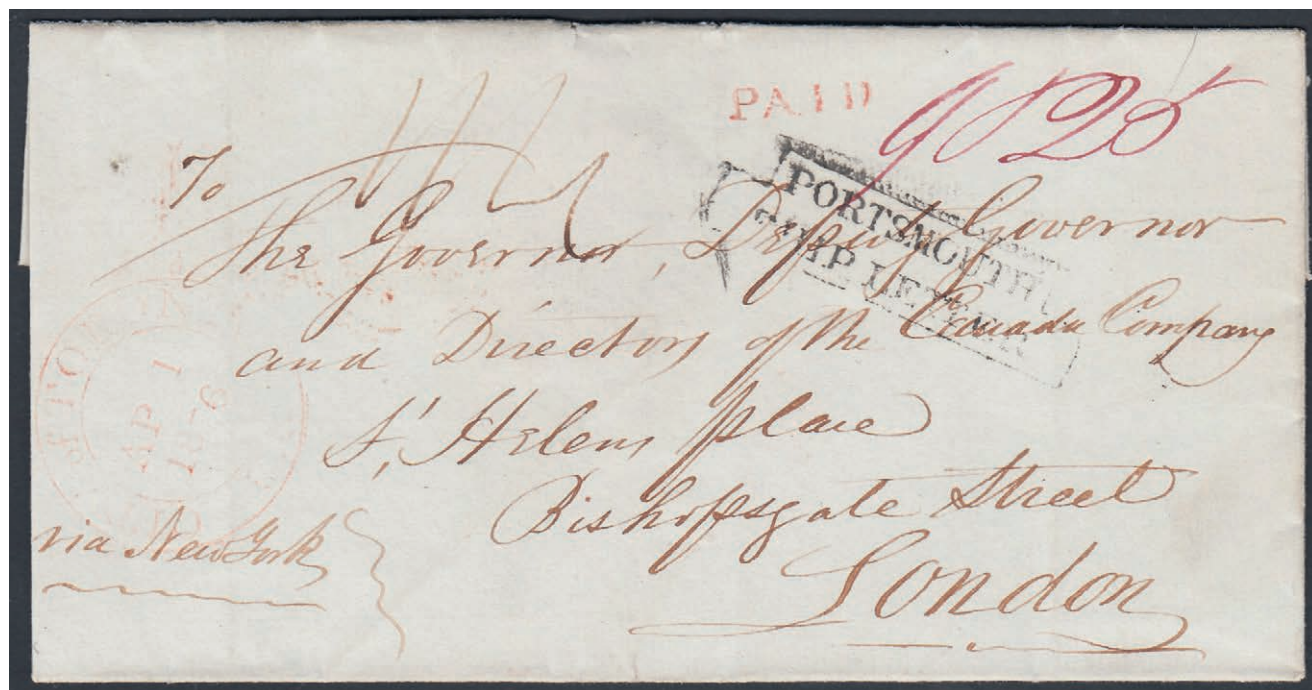 PAID
9 & 25
To
PORTSMOUTH
SHIP LETTER
The Governor, Deputy Governor
and Directors of the Canada Company
St, Helens place
AP 1
Bishopsgate Street
via New York
London